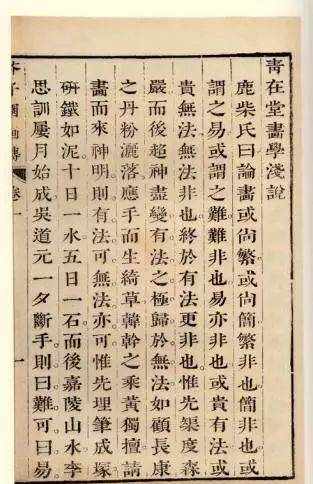 青在堂畫學淺說
鹿柴氏曰論畫或尚繁。或尚簡。繁非也。簡非也。或
謂之易。或謂之難。難非也。易亦非也。或貴有法。或
貴無法。無法非也。終於有法更非也。惟先榘度森
嚴。而後超神盡變。有法之極。歸於無法。如顧長康
之丹粉灑落。應手而生綺草。韓幹之乘黃獨擅。請
畫而來神明。則有法可。無法亦可。惟先埋筆成塚。
研鐵如泥。十日一水。五日一石。而後嘉陵山水。李
思訓屢月始成。吳道元一夕斷手。則曰難可。曰易
芥子園畫傳 卷一 一